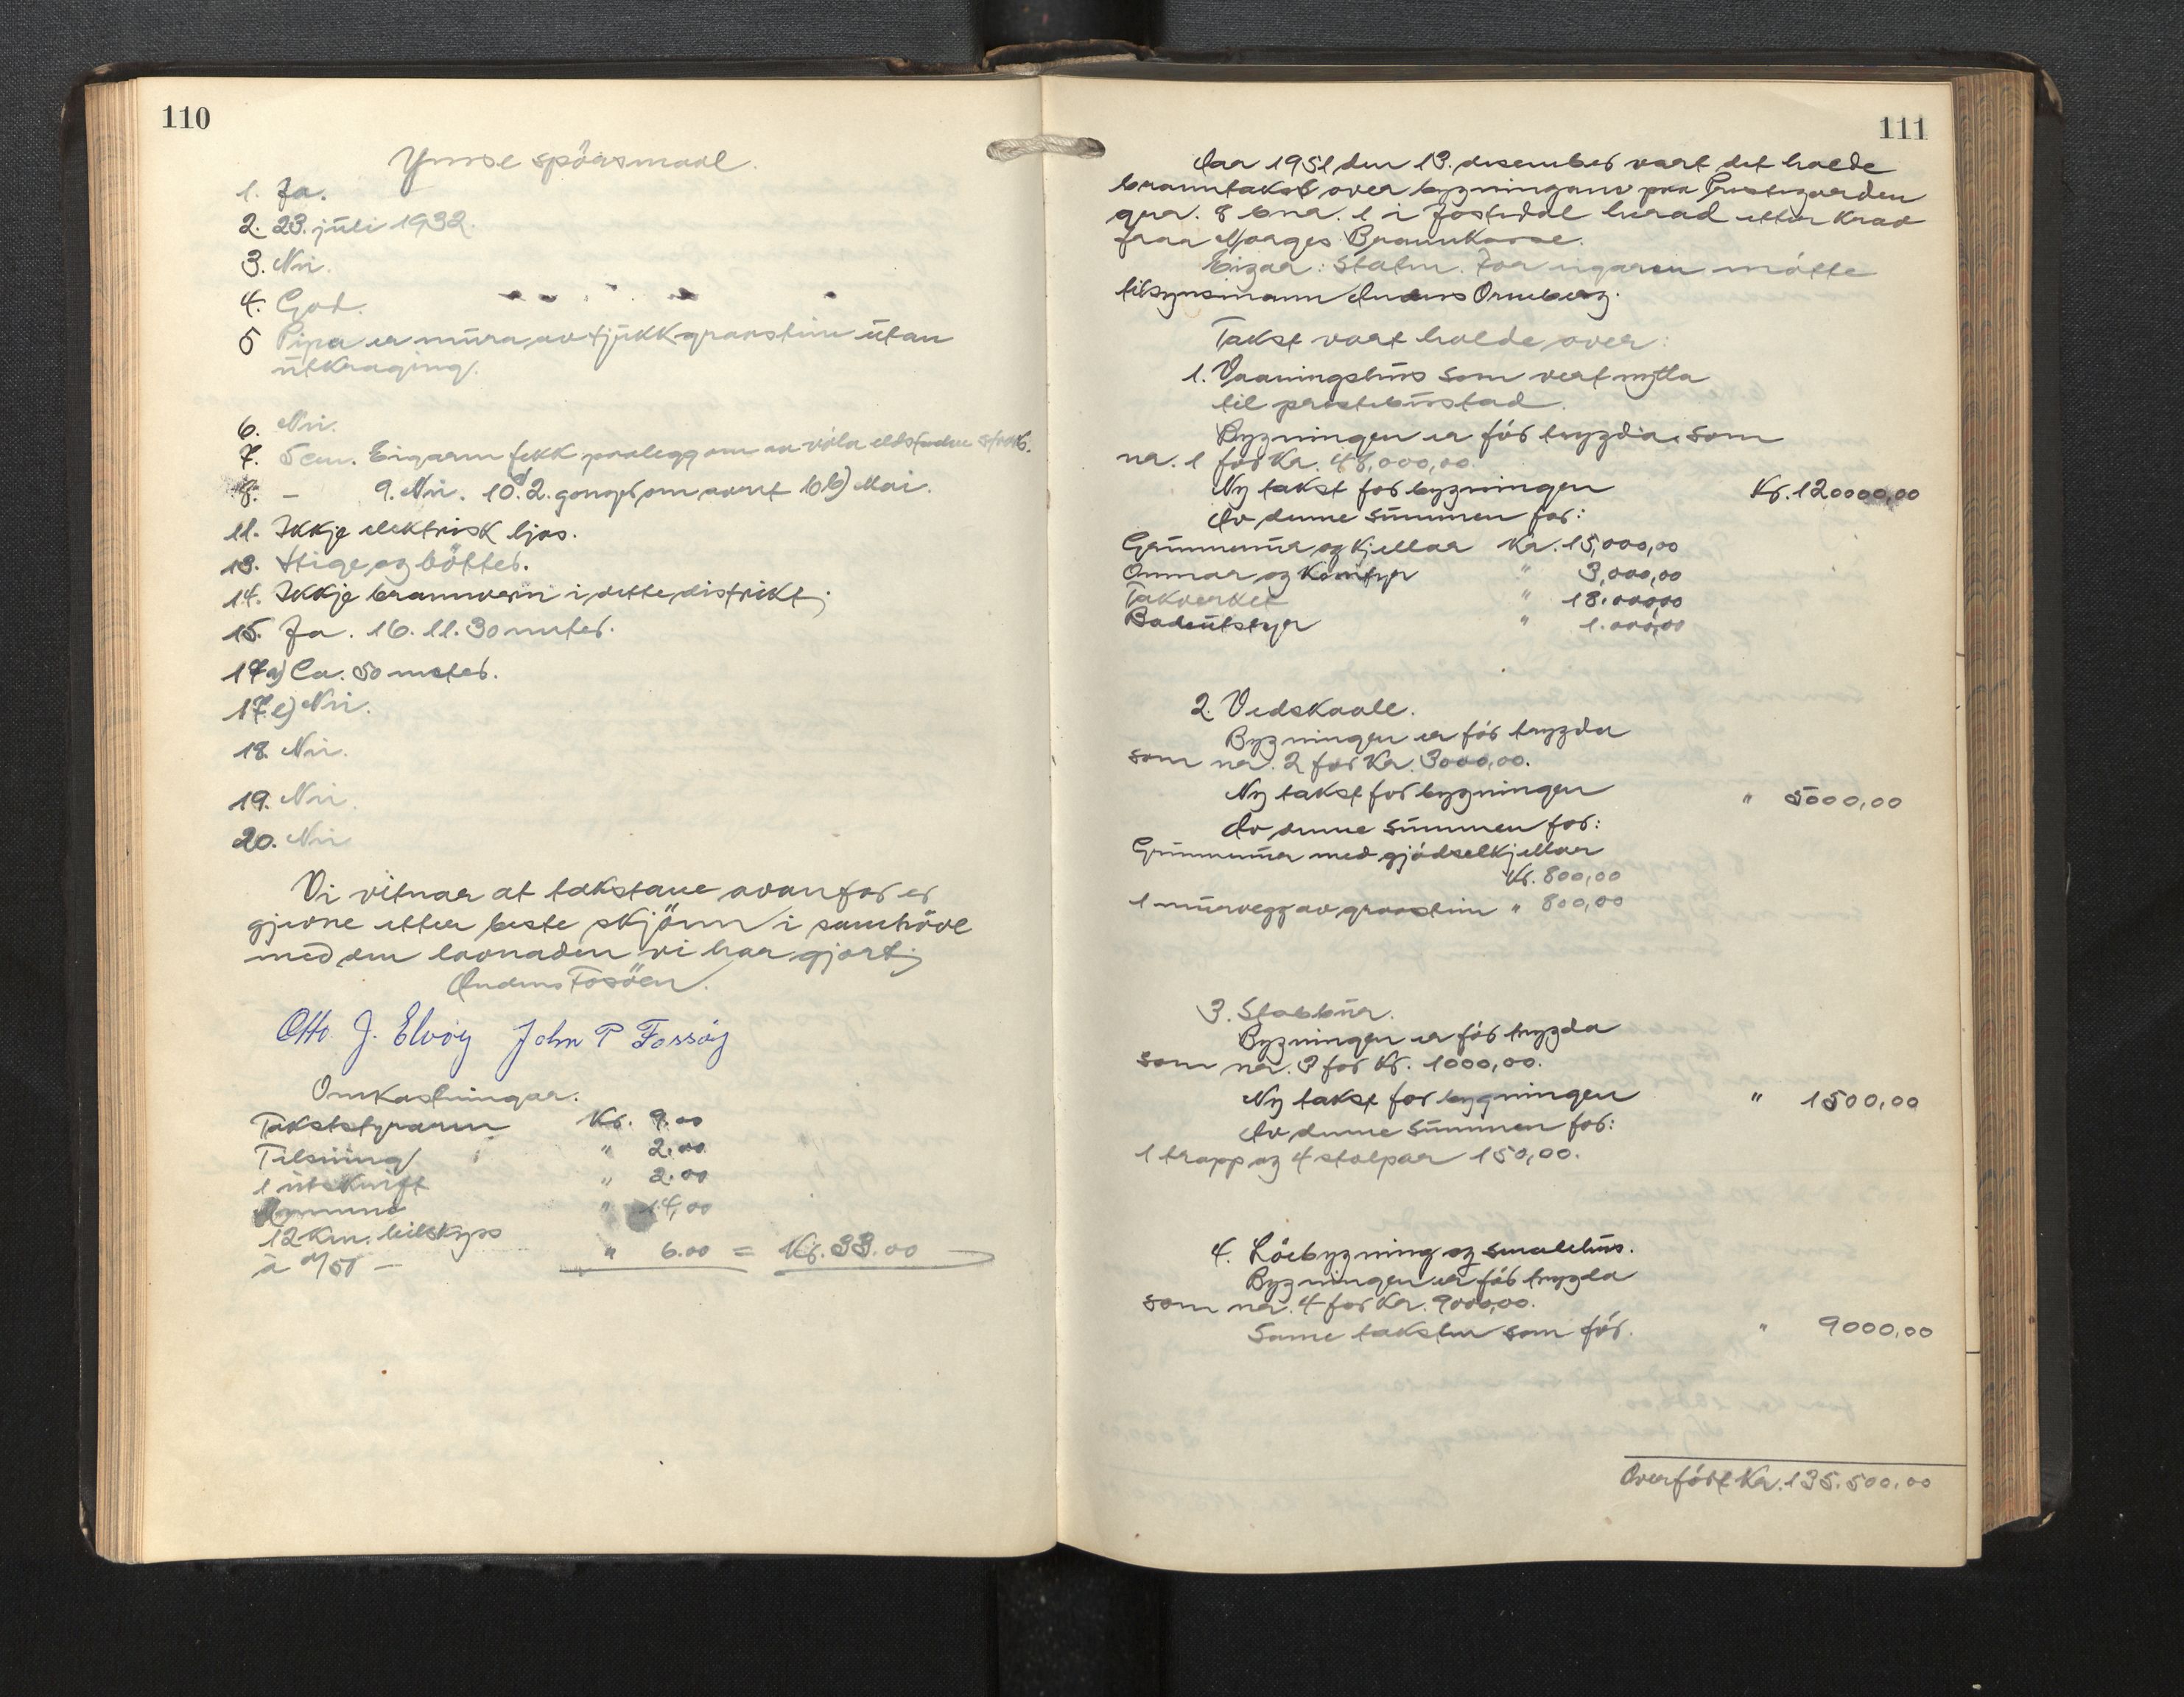 110
Ymse spörsmaal.
1. Ja.
2. 23. juli 1932.
3. Nei.
4. God.
5 Pipa er mura av tjukk graastein utan
utkraging.
6. Nei.
7. 5 cm. Eigaren fekk paalegg om aa
8. – 9. Nei. 10a 2. gonger om aaret 10 b) Mai.
11. Ikkje elektrisk ljos.
13. Stige og bötter.
14. Ikkje brannvern i dette distrikt.
15. Ja. 16. 11. 30 meter.
17a) Ca. 50 meter.
17 e) Nei.
18. Nei.
19. Nei.
20. Nei
Vi vitnar at takstane ovanfor er
gjevne etter beste skjönn i samhöve
med den lovnaden vi har gjort.
Anders Fosöen.
Otto J. Elvöy John P Fossöy
Omkostningar.
Takststyraren Kr. 9.00
Tilsning " 2.00
1 utskrift " 2.00
" 14,00
12 km. bilskyss
à 0/50 – " 6.00 = Kr. 33.00
111
Aar 1951 den 13. desember vart det halde
branntakst over bygningane paa Prestegarden
gnr. 8 bnr. 1 i Jostedal herad etter krav
fraa Norges Brannkasse.
Eigar: Staten. For eigaren mötte
tilsynsmann Anders Ormberg.
Takst vart halde over:
1. Vaaningshus som vert nytta
til prestebustad.
Bygningen er för trygda som
nr. 1 for Kr. 48,000,00.
Ny takst for bygningen Kr. 120000,00
Av denne summen for:
Grunnmur og kjellar Kr. 15,000,00
Omnar og komfyr " 3,000,00
Takverket " 18.000,00
Badeutstyr " 1.000,00
2. Vedskaale.
Bygningen er för trygda
som nr. 2 for Kr. 3000,00.
Ny takst for bygningen " 5000,00
Av denne summen for:
Grunnmur med gjödselkjellar
Kr. 800,00
1 murvegg av graastein " 800,00
3. Stabbur.
Bygningen er för trygda
som nr. 3 for Kr. 1000,00.
Ny takst for bygningen " 1500,00
Av denne summen for:
1 trapp og 4 stolpar 150,00.
4. Löebygning og smalehus.
Bygningen er för trygda
som nr. 4 for Kr. 9000,00.
Same taksten som för. " 9000,00
Overfört Kr. 135.500.00